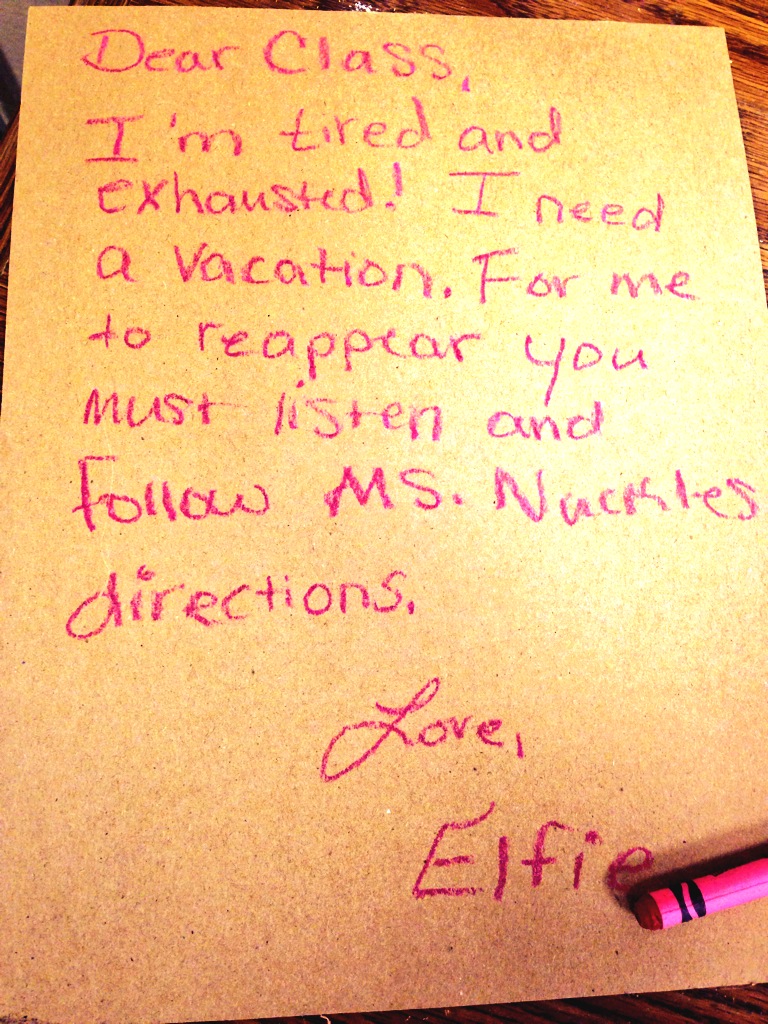 Dear Class,
I'm tired and
exhausted! I need
a vacation. For me
to reappear you
must listen and
follow Ms. Nuckles
directions.
Love,
Elfie